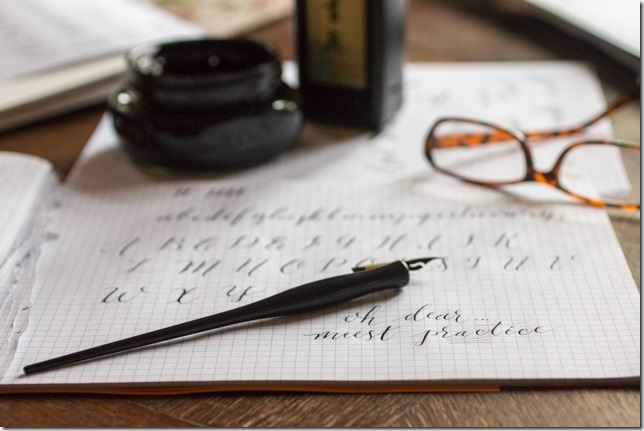 abcdefghijklmnopqrstuvwxyz
A B C D E F G H I J K
L M N O P Q S T U V
W X Y
oh dear...
must practice